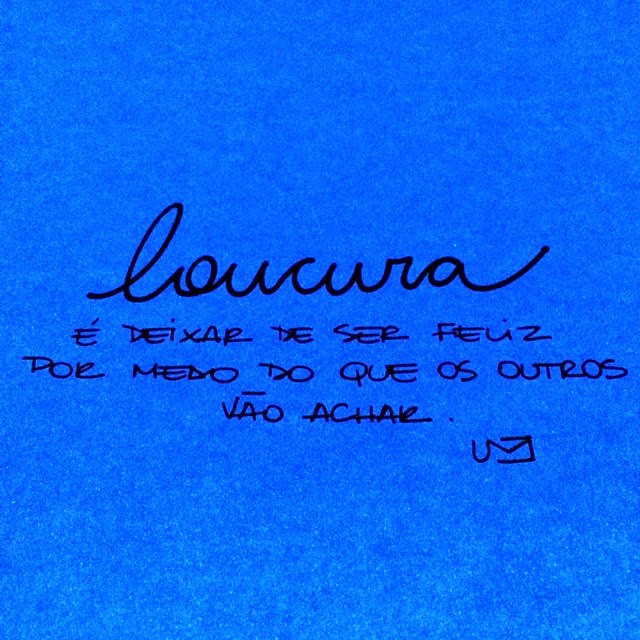 loucura
É DEIXAR DE SER FELIZ
POR MEDO DO QUE OS OUTROS
VÃO ACHAR.